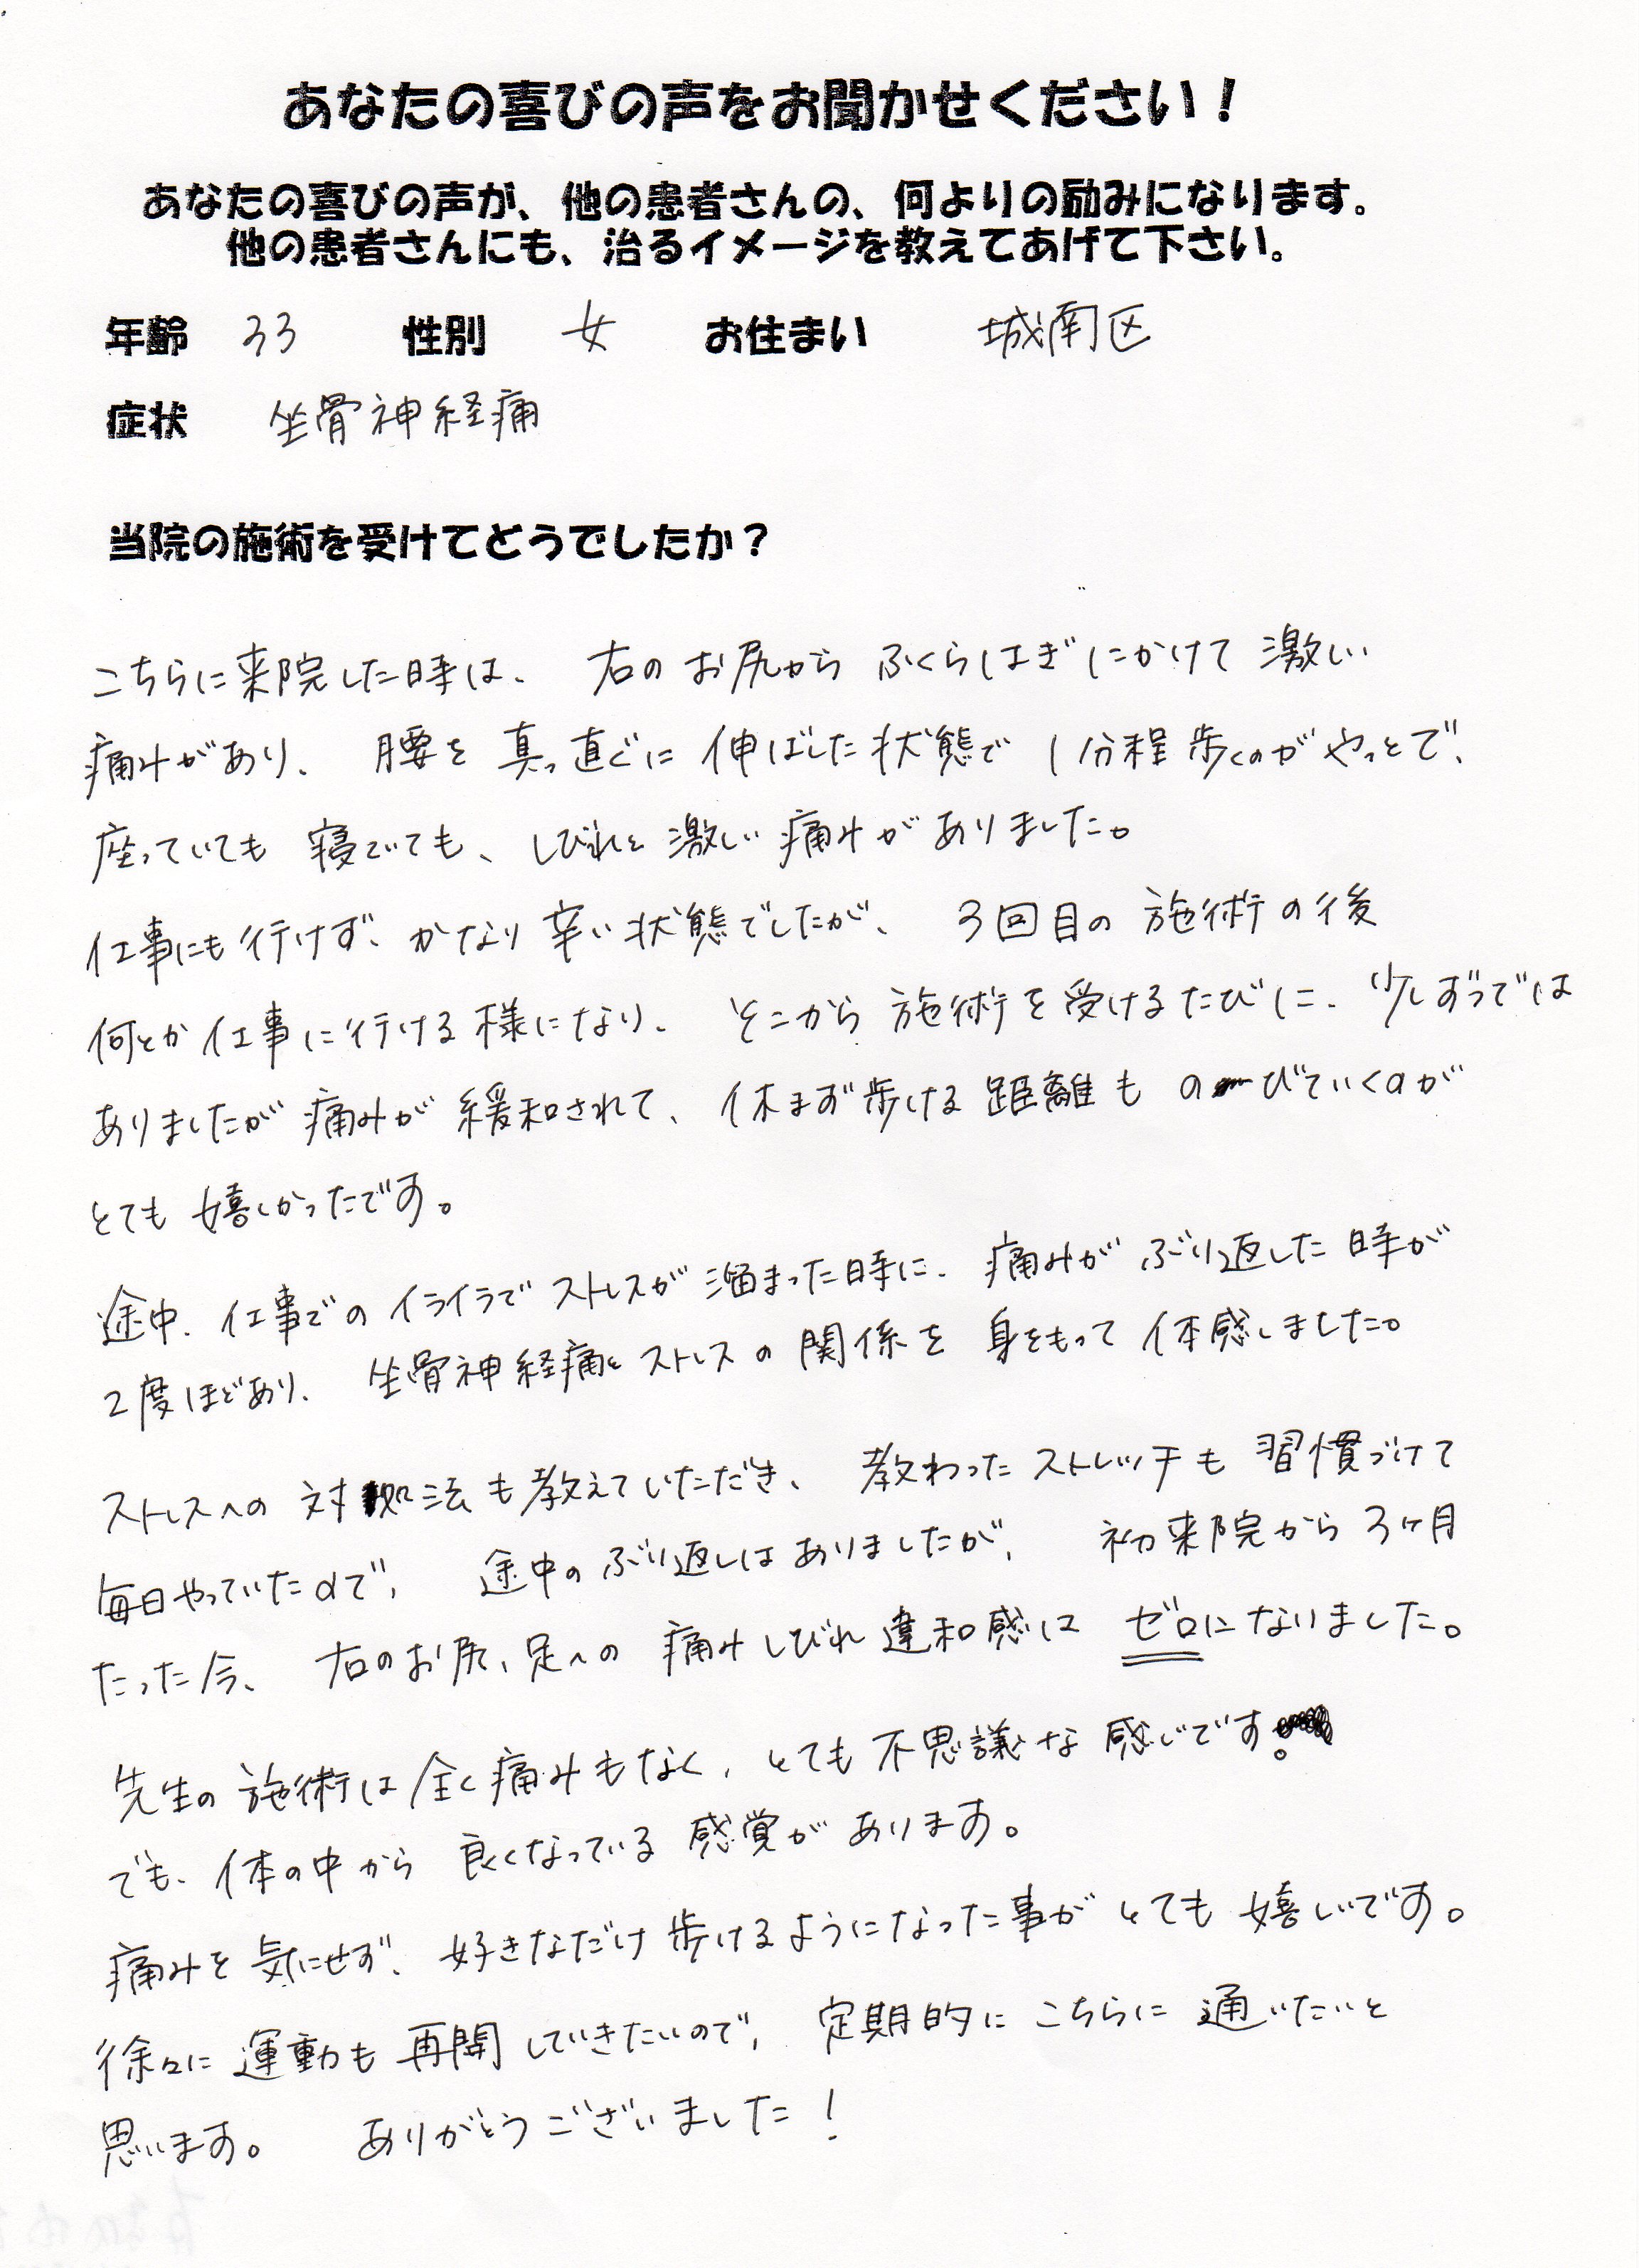 あなたの喜びの声をお聞かせください！
あなたの喜びの声が、他の患者さんの、何よりの励みになります。
他の患者さんにも、治るイメージを教えてあげて下さい。
年齢 33 性別 女 お住まい 城南区
症状 坐骨神経痛
当院の施術を受けてどうでしたか？
こちらに来院した時は、右のお尻からふくらはぎにかけて激しい
痛みがあり、腰を真っ直ぐに伸ばした状態で1分程歩くのがやっとで、
座っていても寝ていても、しびれと激しい痛みがありました。
仕事にも行けず、かなり辛い状態でしたが、3回目の施術の後
何とか仕事に行ける様になり、そこから施術を受けるたびに、少しずつでは
ありましたが痛みが緩和されて、休まず歩ける距離ものびていくのが
とても嬉しかったです。
途中、仕事でのイライラでストレスが溜まった時に、痛みがぶり返した時が
2度ほどあり、坐骨神経痛とストレスの関係を身をもって体感しました。
ストレスへの対処法も教えていただき、教わったストレッチも習慣づけて
毎日やっていたので、途中のぶり返しはありましたが、初来院から3ヶ月
たった今、右のお尻、足への痛みしびれ違和感はゼロになりました。
先生の施術は全く痛みもなく、とても不思議な感じです。
でも、体の中から良くなっている感覚があります。
痛みを気にせず、好きなだけ歩けるようになった事がとても嬉しいです。
徐々に運動も再開していきたいので、定期的にこちらに通いたいと
思います。ありがとうございました！